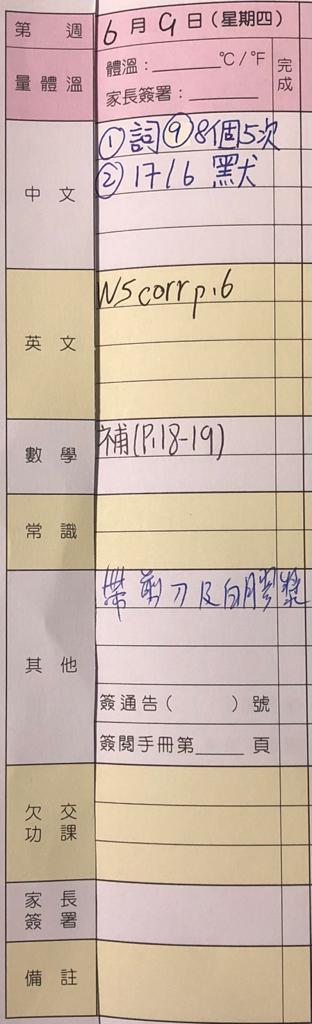 第 週 6月9日(星期四)
量體溫 體溫:______°C/°F 完成
家長簽署:______
中文 ①詞⑨8個5次
②17/6 默
英文 WS corr p.6
數學 補(P.18-19)
常識
其他 帶剪刀及白膠漿
簽通告( )號
簽閱手冊第____頁
欠交功課
家長簽署
備註